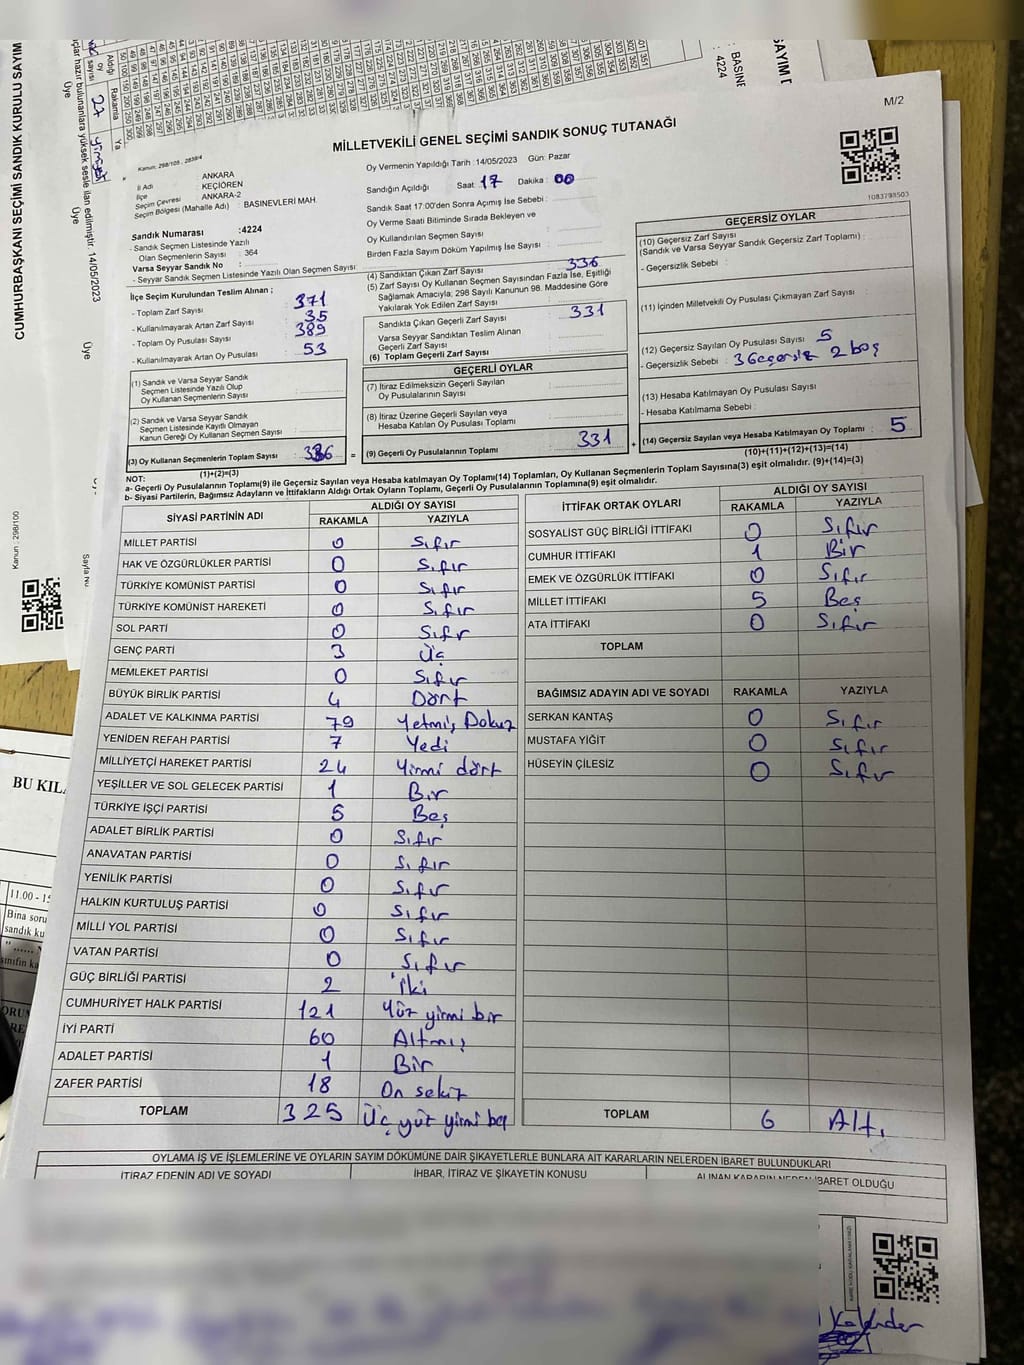 CUMHURBAŞKANI SEÇİMİ SANDIK KURULU SAYIM
M/2
MİLLETVEKİLİ GENEL SEÇİMİ SANDIK SONUÇ TUTANAĞI
Kanun: 298/105 , 2839/4
İl Adı : ANKARA
İlçe : KEÇİÖREN
Seçim Çevresi : ANKARA-2
Seçim Bölgesi (Mahalle Adı) : BASINEVLERİ MAH.
Oy Vermenin Yapıldığı Tarih : 14/05/2023 Gün: Pazar
Sandığın Açıldığı Saat : 17 Dakika : 00
Sandık Saat 17:00'den Sonra Açımış İse Sebebi :
Oy Verme Saati Bitiminde Sırada Bekleyen ve
Oy Kullandırılan Seçmen Sayısı :
Birden Fazla Sayım Döküm Yapılmış İse Sayısı :
1083798503
Sandık Numarası :4224
- Sandık Seçmen Listesinde Yazılı
Olan Seçmenlerin Sayısı : 364
Varsa Seyyar Sandık No :
- Seyyar Sandık Seçmen Listesinde Yazılı Olan Seçmen Sayısı :
İlçe Seçim Kurulundan Teslim Alınan ;
- Toplam Zarf Sayısı : 371
- Kullanılmayarak Artan Zarf Sayısı : 35
- Toplam Oy Pusulası Sayısı : 389
- Kullanılmayarak Artan Oy Pusulası : 53
(1) Sandık ve Varsa Seyyar Sandık
Seçmen Listesinde Yazılı Olup
Oy Kullanan Seçmenlerin Sayısı :
(2) Sandık ve Varsa Seyyar Sandık
Seçmen Listesinde Kayıtlı Olmayan
Kanun Gereği Oy Kullanan Seçmen Sayısı :
(3) Oy Kullanan Seçmenlerin Toplam Sayısı : 336 =
(1)+(2)=(3)
(4) Sandıktan Çıkan Zarf Sayısı : 336
(5) Zarf Sayısı Oy Kullanan Seçmen Sayısından Fazla İse, Eşitliği
Sağlamak Amacıyla; 298 Sayılı Kanunun 98. Maddesine Göre
Yakılarak Yok Edilen Zarf Sayısı :
Sandıkta Çıkan Geçerli Zarf Sayısı : 331
Varsa Seyyar Sandıktan Teslim Alınan
Geçerli Zarf Sayısı :
(6) Toplam Geçerli Zarf Sayısı :
GEÇERLİ OYLAR
(7) İtiraz Edilmeksizin Geçerli Sayılan
Oy Pusulalarının Sayısı :
(8) İtiraz Üzerine Geçerli Sayılan veya
Hesaba Katılan Oy Pusulası Toplamı :
(9) Geçerli Oy Pusulalarının Toplamı : 331 +
GEÇERSİZ OYLAR
(10) Geçersiz Zarf Sayısı
(Sandık ve Varsa Seyyar Sandık Geçersiz Zarf Toplamı) :
- Geçersizlik Sebebi :
(11) İçinden Milletvekili Oy Pusulası Çıkmayan Zarf Sayısı :
(12) Geçersiz Sayılan Oy Pusulası Sayısı : 5
- Geçersizlik Sebebi : 3 Geçersiz 2 boş
(13) Hesaba Katılmayan Oy Pusulası Sayısı :
- Hesaba Katılmama Sebebi :
(14) Geçersiz Sayılan veya Hesaba Katılmayan Oy Toplamı : 5
(10)+(11)+(12)+(13)=(14)
NOT:
a- Geçerli Oy Pusulalarının Toplamı(9) ile Geçersiz Sayılan veya Hesaba katılmayan Oy Toplamı(14) Toplamları, Oy Kullanan Seçmenlerin Toplam Sayısına(3) eşit olmalıdır. (9)+(14)=(3)
b- Siyasi Partilerin, Bağımsız Adayların ve İttifakların Aldığı Ortak Oyların Toplamı, Geçerli Oy Pusulalarının Toplamına(9) eşit olmalıdır.
SİYASİ PARTİNİN ADI ALDIĞI OY SAYISI
RAKAMLA YAZIYLA
MİLLET PARTİSİ 0 Sıfır
HAK VE ÖZGÜRLÜKLER PARTİSİ 0 Sıfır
TÜRKİYE KOMÜNİST PARTİSİ 0 Sıfır
TÜRKİYE KOMÜNİST HAREKETİ 0 Sıfır
SOL PARTİ 0 Sıfır
GENÇ PARTİ 3 Üç
MEMLEKET PARTİSİ 0 Sıfır
BÜYÜK BİRLİK PARTİSİ 4 Dört
ADALET VE KALKINMA PARTİSİ 79 Yetmiş Dokuz
YENİDEN REFAH PARTİSİ 7 Yedi
MİLLİYETÇİ HAREKET PARTİSİ 24 Yirmi dört
YEŞİLLER VE SOL GELECEK PARTİSİ 1 Bir
TÜRKİYE İŞÇİ PARTİSİ 5 Beş
ADALET BİRLİK PARTİSİ 0 Sıfır
ANAVATAN PARTİSİ 0 Sıfır
YENİLİK PARTİSİ 0 Sıfır
HALKIN KURTULUŞ PARTİSİ 0 Sıfır
MİLLİ YOL PARTİSİ 0 Sıfır
VATAN PARTİSİ 0 Sıfır
GÜÇ BİRLİĞİ PARTİSİ 2 İki
CUMHURİYET HALK PARTİSİ 121 Yüz yirmi bir
İYİ PARTİ 60 Altmış
ADALET PARTİSİ 1 Bir
ZAFER PARTİSİ 18 On sekiz
TOPLAM 325 Üç yüz yirmi beş
İTTİFAK ORTAK OYLARI ALDIĞI OY SAYISI
RAKAMLA YAZIYLA
SOSYALİST GÜÇ BİRLİĞİ İTTİFAKI 0 Sıfır
CUMHUR İTTİFAKI 1 Bir
EMEK VE ÖZGÜRLÜK İTTİFAKI 0 Sıfır
MİLLET İTTİFAKI 5 Beş
ATA İTTİFAKI 0 Sıfır
TOPLAM
BAĞIMSIZ ADAYIN ADI VE SOYADI RAKAMLA YAZIYLA
SERKAN KANTAŞ 0 Sıfır
MUSTAFA YİĞİT 0 Sıfır
HÜSEYİN ÇİLESİZ 0 Sıfır
TOPLAM 6 Altı
OYLAMA İŞ VE İŞLEMLERİNE VE OYLARIN SAYIM DÖKÜMÜNE DAİR ŞİKAYETLERLE BUNLARA AİT KARARLARIN NELERDEN İBARET BULUNDUKLARI
İTİRAZ EDENİN ADI VE SOYADI İHBAR, İTİRAZ VE ŞİKAYETİN KONUSU ALINAN KARARIN NEDEN İBARET OLDUĞU
Kanun : 298/100
BU KILA
11.00 - 15
Bina soru
sandık ku